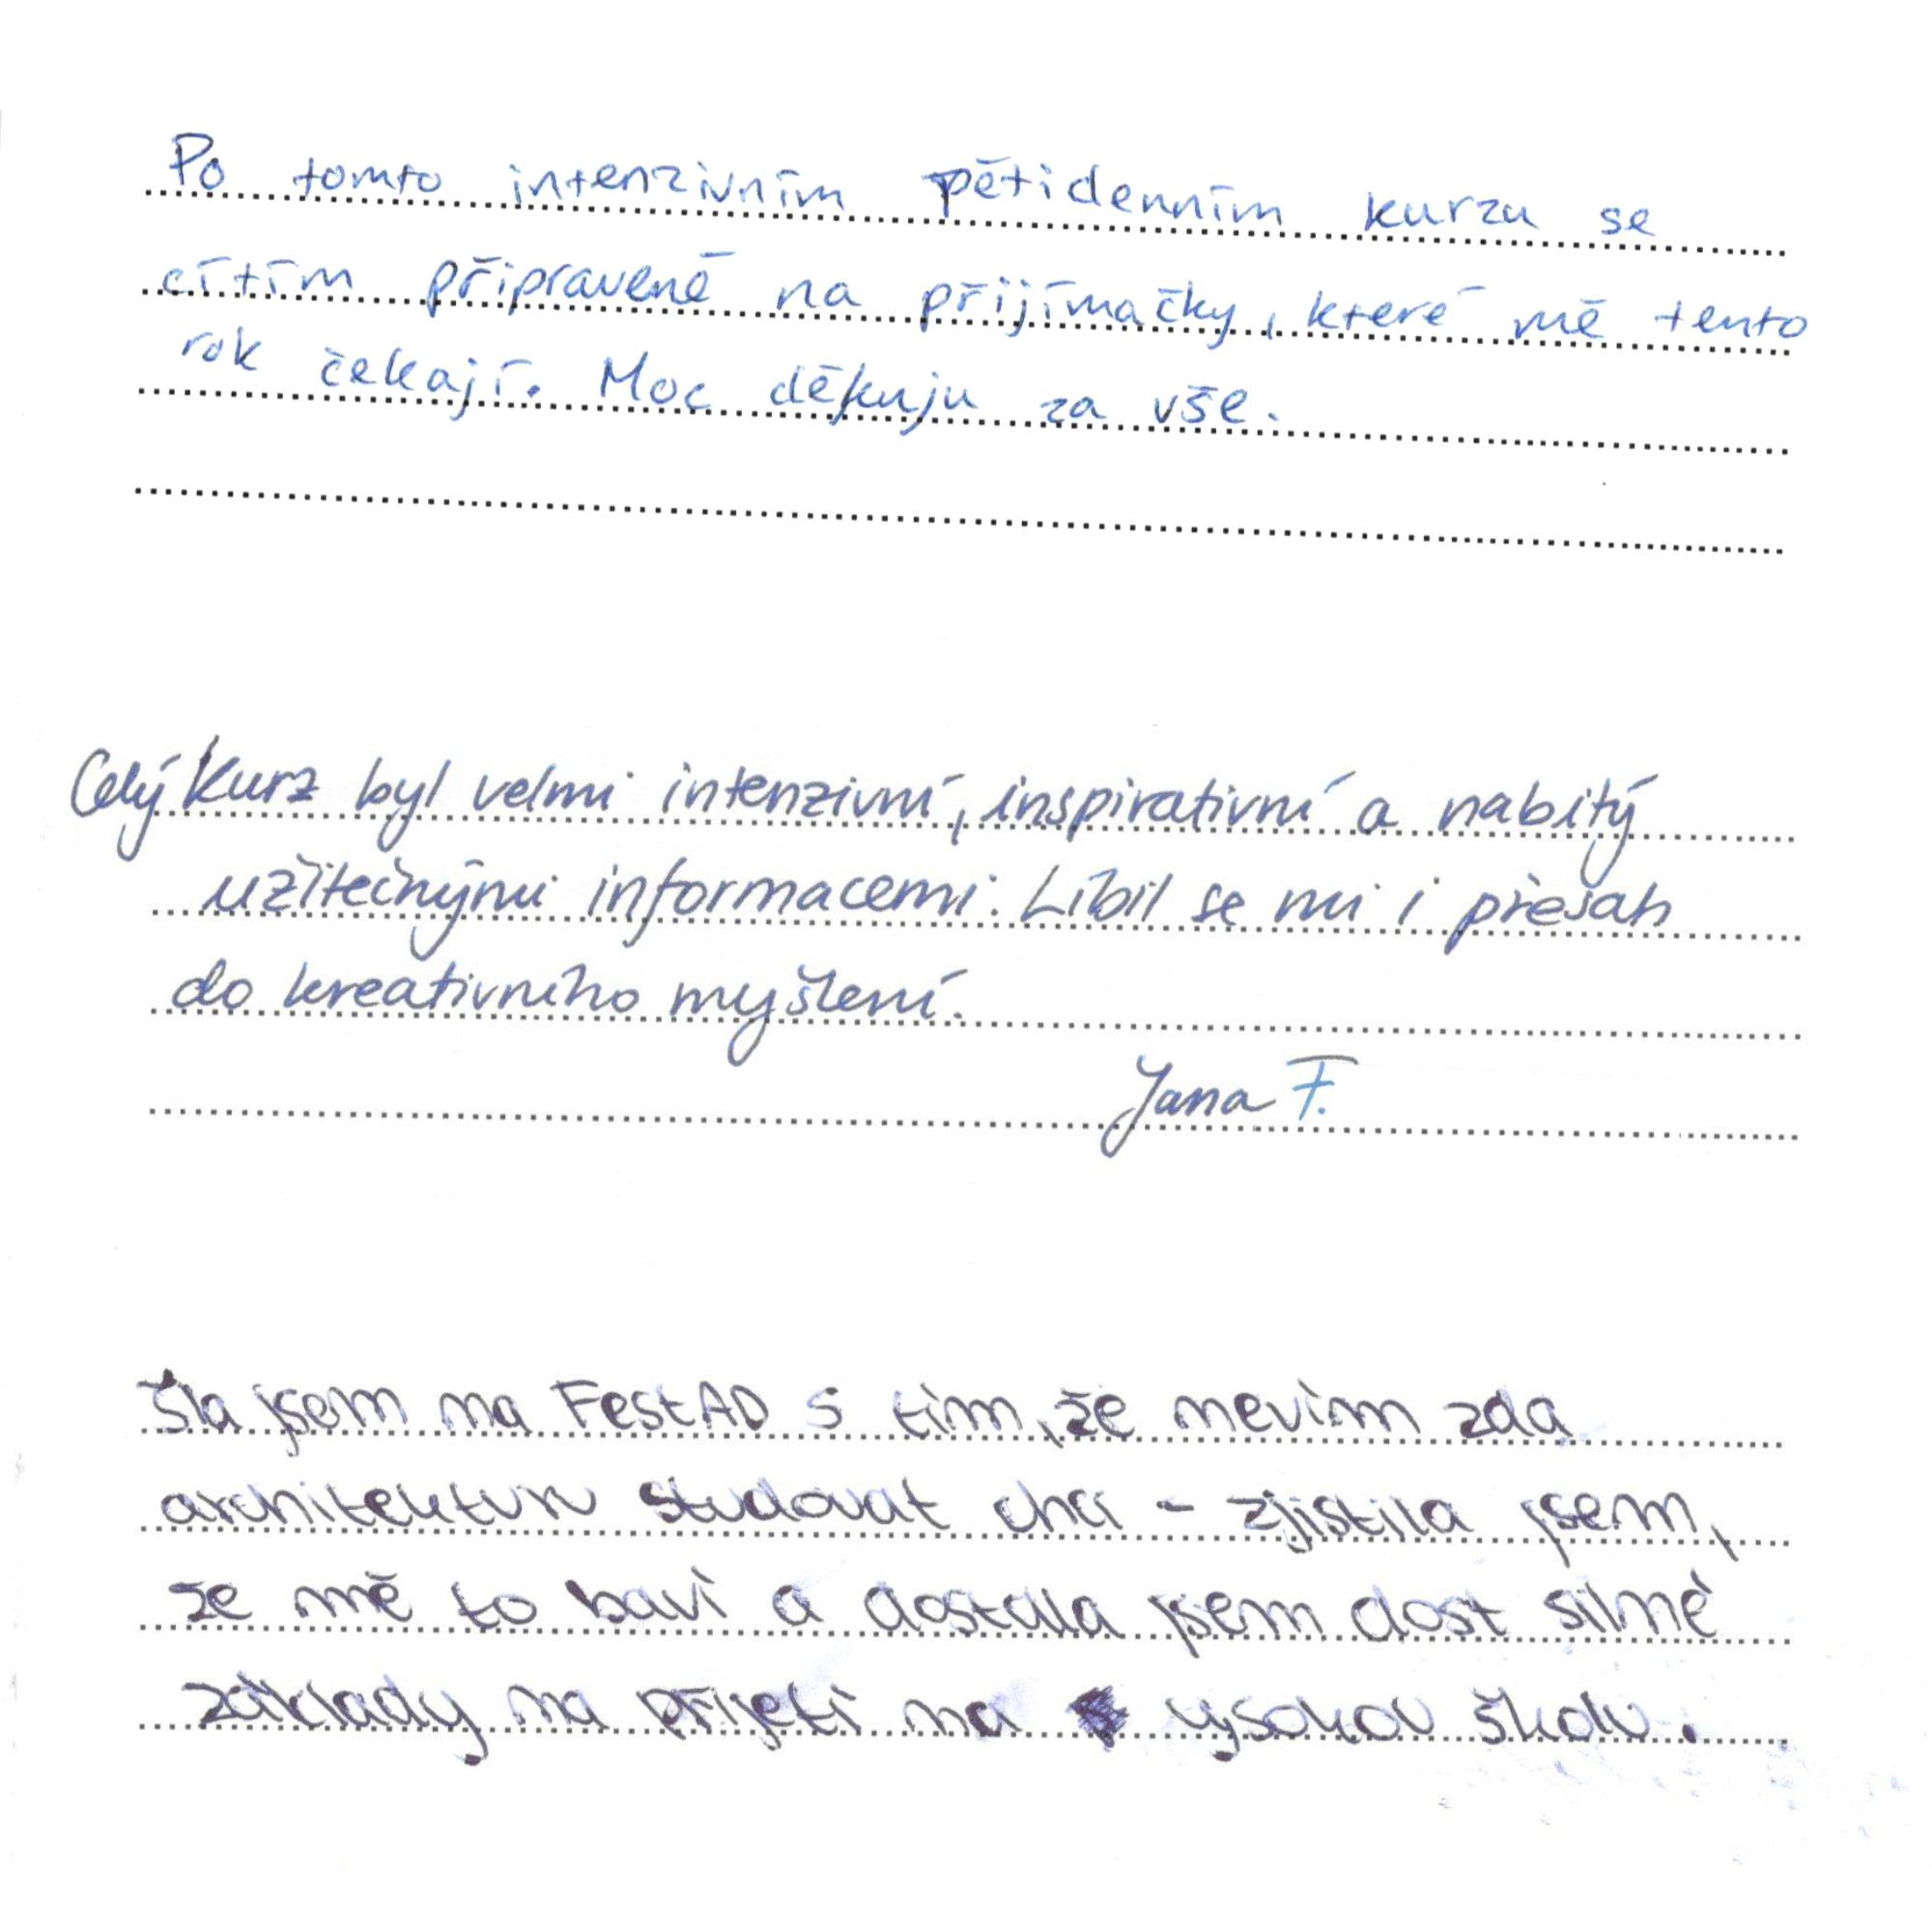 Po tomto intenzivním pětidenním kurzu se
cítím připraveně na přijímačky, které mě tento
rok čekají. Moc děkuju za vše.
Celý kurz byl velmi intenzivní, inspirativní a nabitý
užitečnými informacemi. Líbil se mi i přesah
do kreativního myšlení.
Jana F.
Šla jsem na FestAD s tím, že nevím zda
architekturu studovat chci - zjistila jsem,
že mě to baví a dostala jsem dost silné
základy na přijetí na vysokou školu.